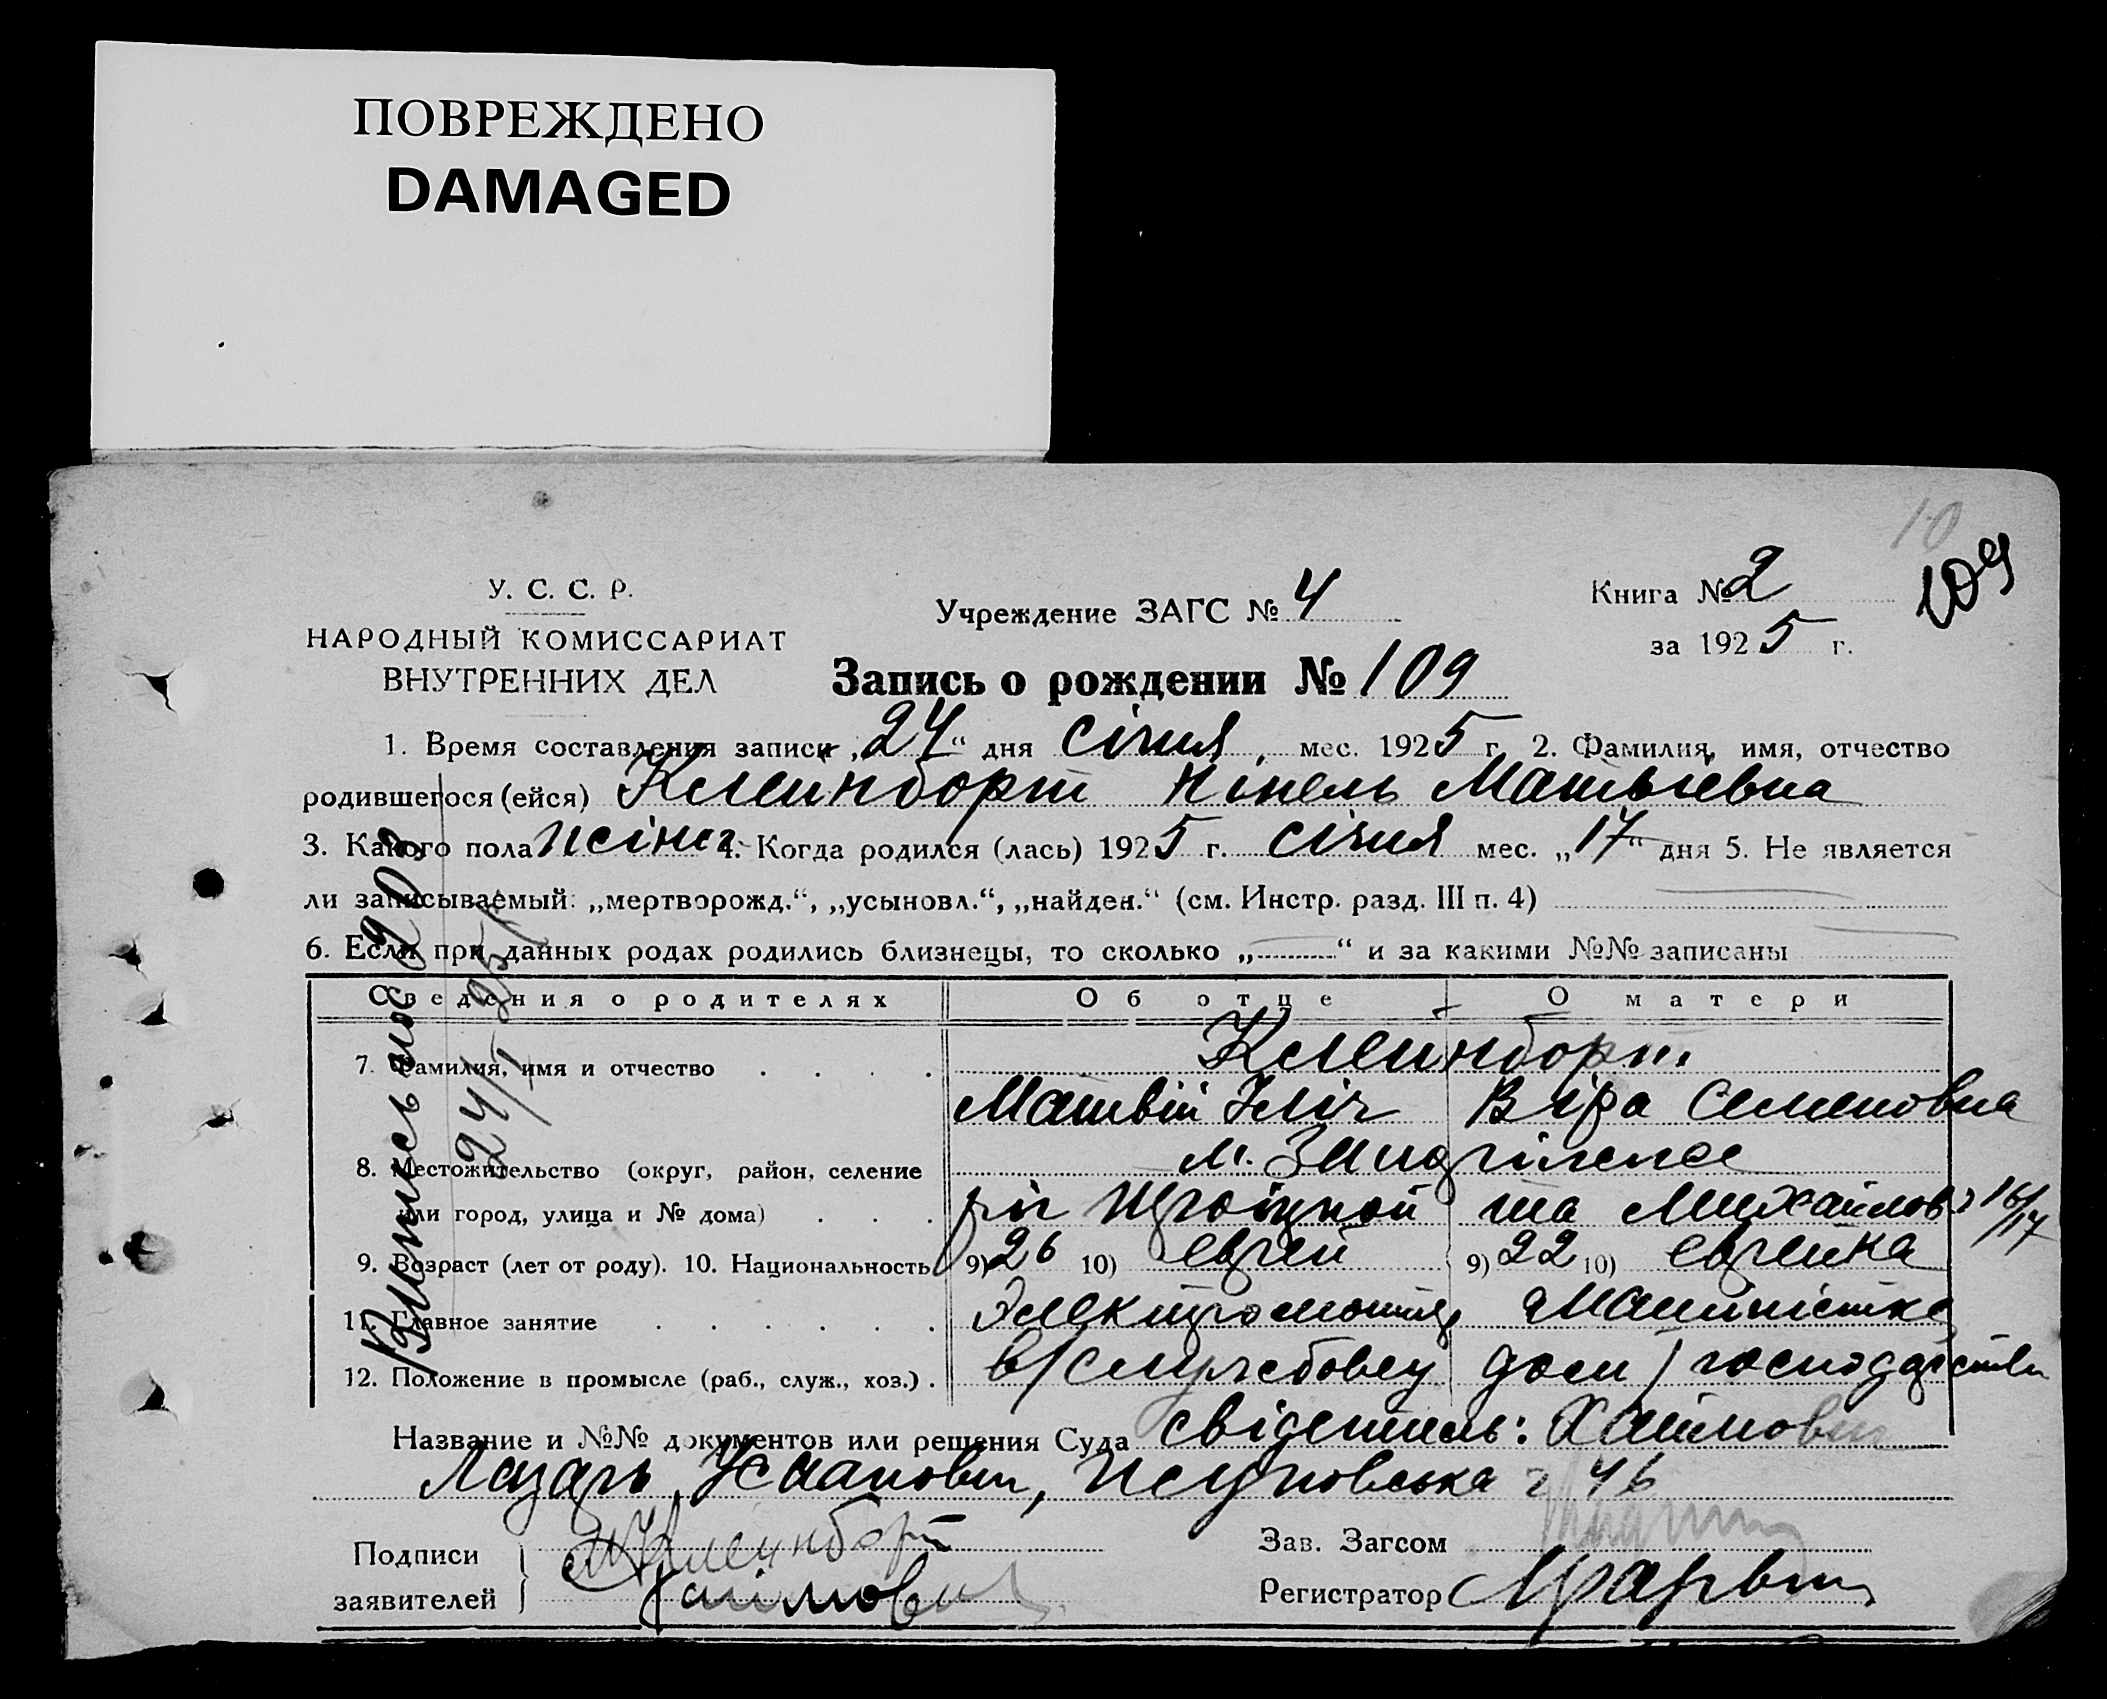 ПОВРЕЖДЕНО
DAMAGED
10
109
У. С. С. Р.
НАРОДНЫЙ КОМИССАРИАТ
ВНУТРЕННИХ ДЕЛ
Учреждение ЗАГС № 4
Книга № 2
за 1925 г.
Запись о рождении № 109
1. Время составления записи „24“ дня січня мес. 1925 г. 2. Фамилия, имя, отчество
родившегося (ейся) Клейнборт Нінель Матвіевна
3. Какого пола жіноч. 4. Когда родился (лась) 1925 г. січня мес. „17“ дня 5. Не является
ли записываемый: „мертворожд.“, „усыновл.“, „найден.“ (см. Инстр. разд. III п. 4)
6. Если при данных родах родились близнецы, то сколько „ “ и за какими №№ записаны
Сведения о родителях Об отце О матери
7. Фамилия, имя и отчество Клейнборт
Матвій Іліч Віра Семеновна
8. Местожительство (округ, район, селение м.
или город, улица и № дома) ріг Троіцкой та Михайлов 16/17
9. Возраст (лет от роду). 10. Национальность 9) 26 10) еврей 9) 22 10) еврейка
11. Главное занятие Электромонтер Машиністка
12. Положение в промысле (раб., служ., хоз.) в/службовец дом/господарстві
Название и №№ документов или решения Суда свідетель: Хаймович
Лазарь, 46
Подписи заявителей МКлейнборт
Хаймович
Зав. Загсом
Регистратор
Випись
24/I 25 г